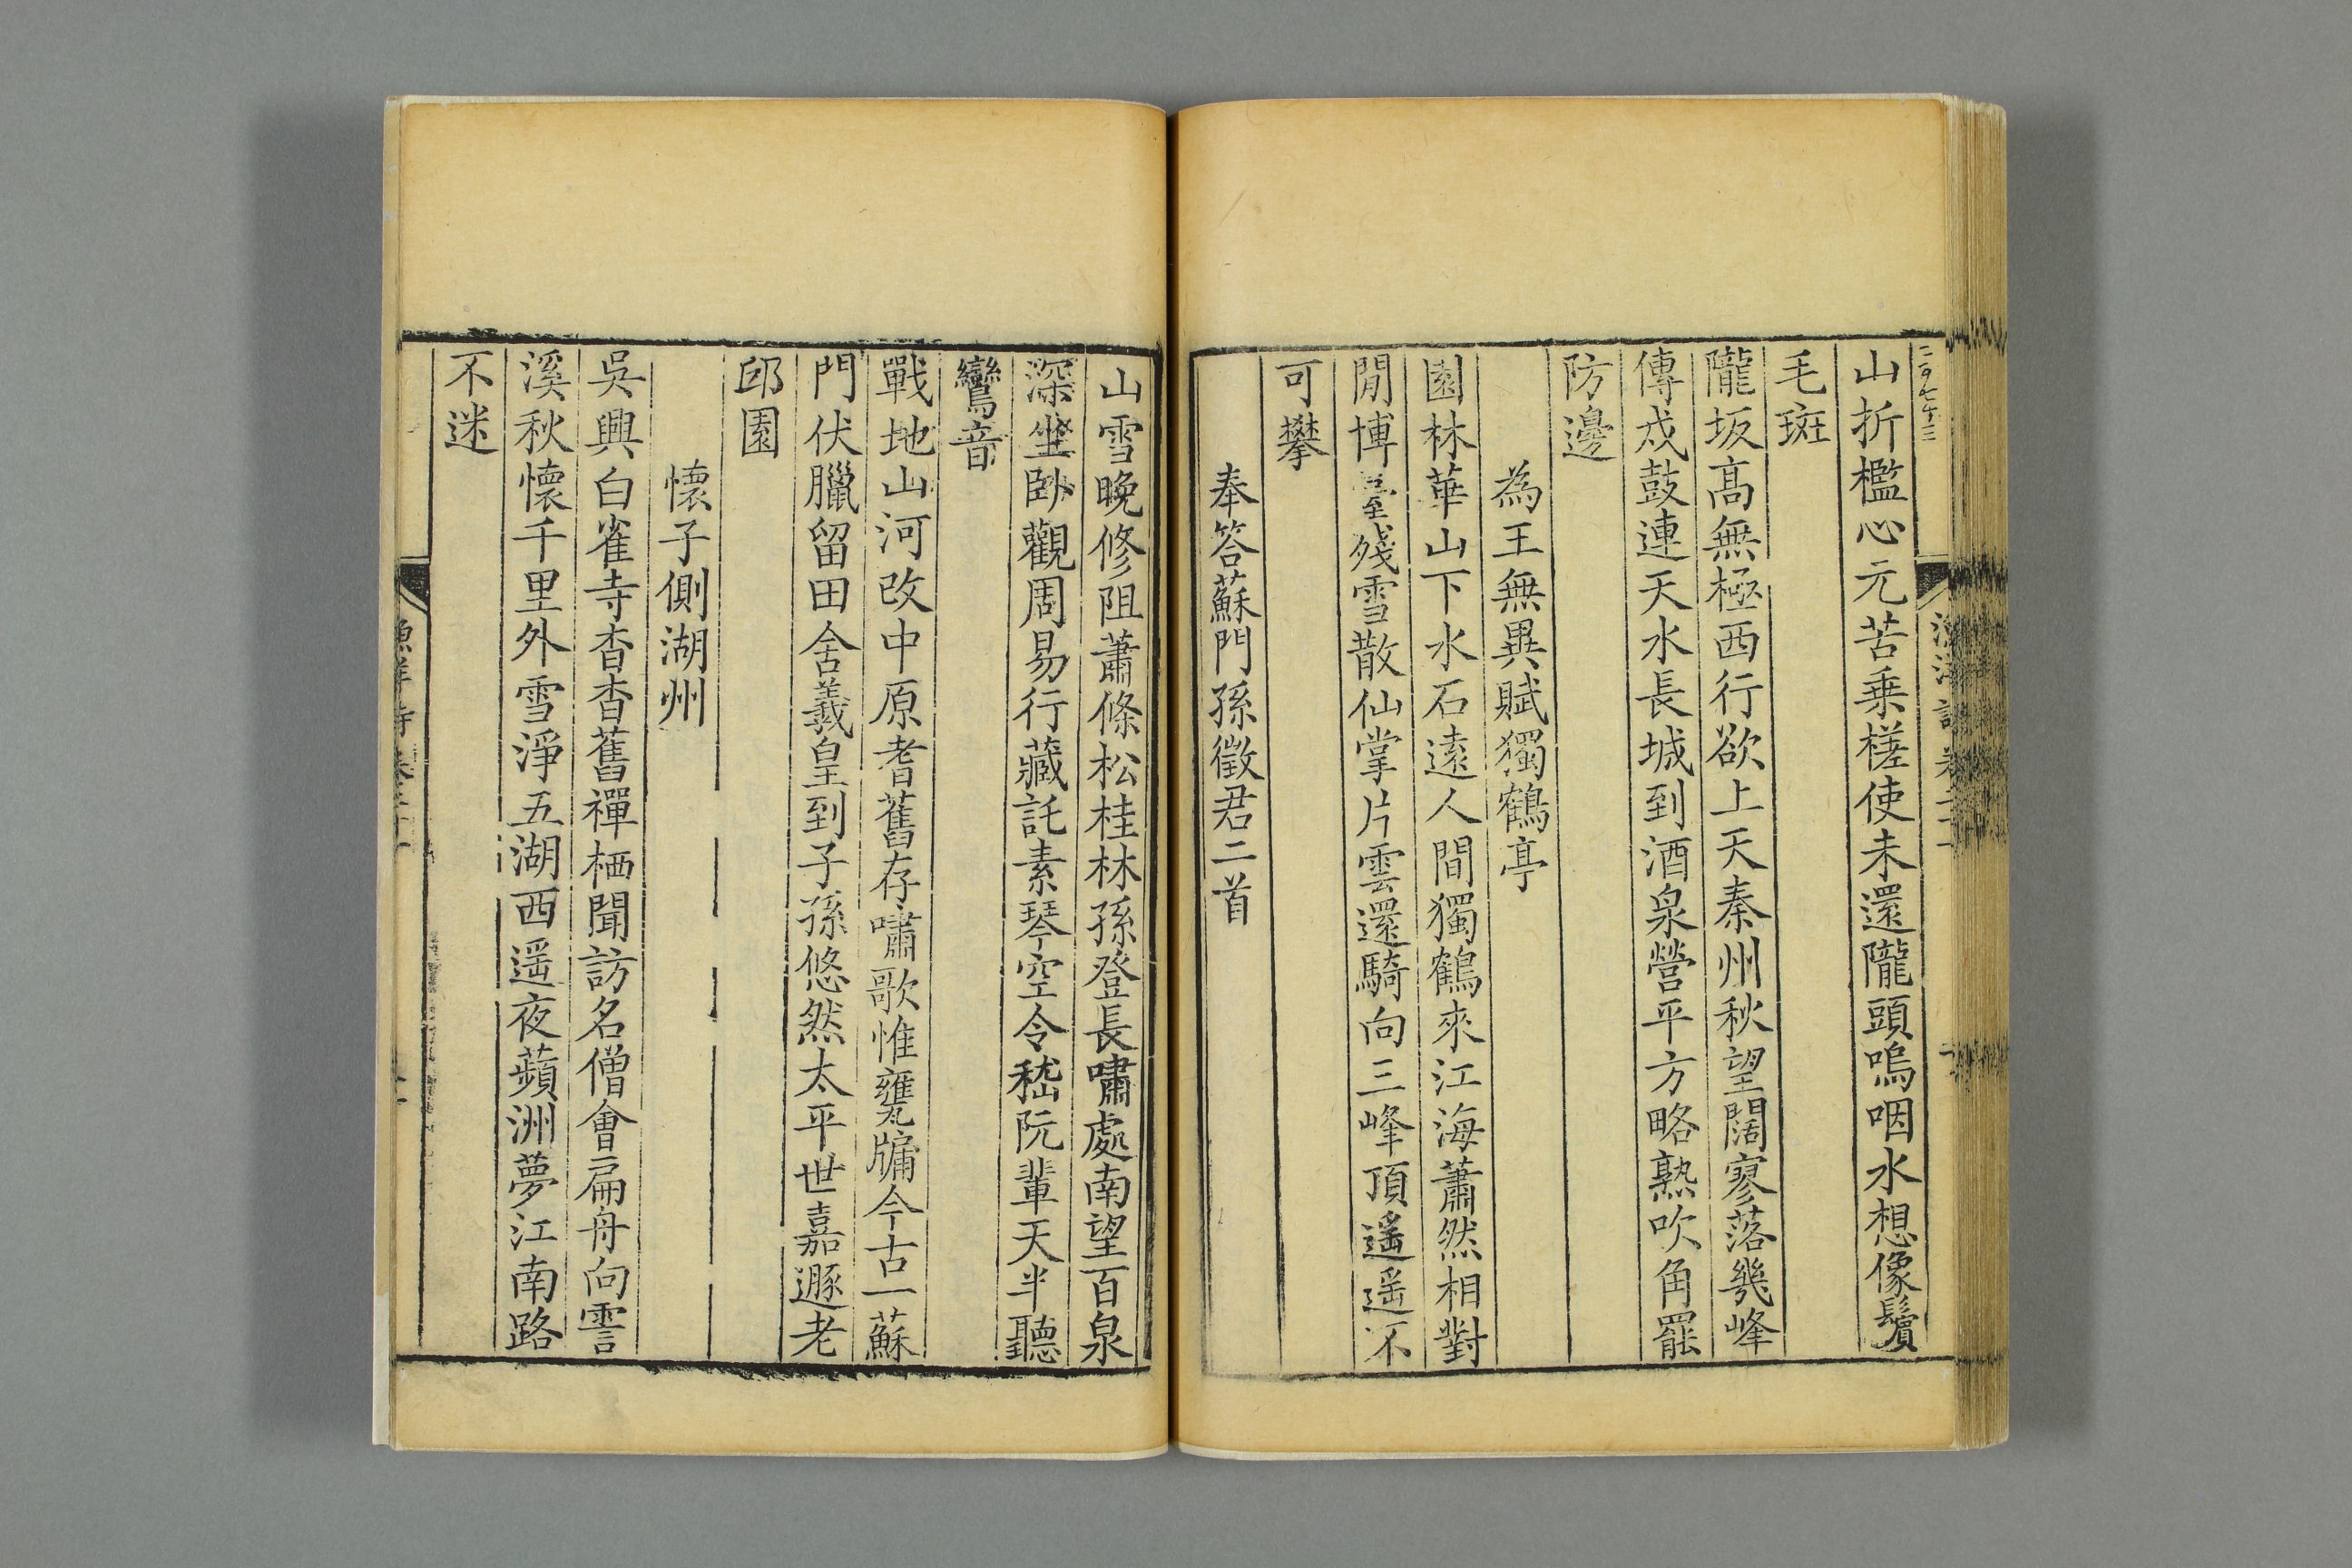 山折檻心元苦乗槎使未還隴頭嗚咽水想像鬢
毛斑
隴坂髙無極西行欲上天秦州秋望闊寥落幾峰
傳戍鼓連天水長城到酒泉營平方略熟吹角罷
防邊
為王無異賦獨鶴亭
園林華山下水石遠人間獨鶴來江海蕭然相對
閒博臺殘雪散仙掌片雲還騎向三峰頂遥遥不
可攀
奉答蘇門孫徵君二首
山雪晚修阻蕭條松桂林孫登長嘯處南望百泉
深坐卧觀周易行藏託素琴空令嵇阮輩天半聽
鸞音
戰地山河改中原耆舊存嘯歌惟甕牖今古一蘇
門伏臘留田舍義皇到子孫悠然太平世嘉遯老
邱園
懐子側湖州
吳興白雀寺杳杳舊禪栖聞訪名僧會扁舟向霅
溪秋懐千里外雪淨五湖西遥夜蘋洲夢江南路
不迷